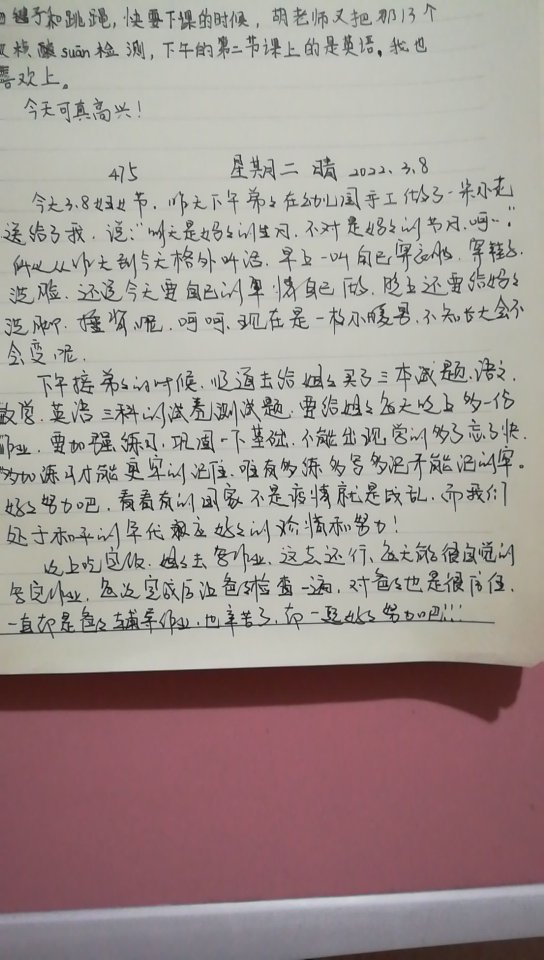 毽子和跳绳，快要下课的时候，胡老师又把那13个
核酸suān检测，下午的第二节课上的是英语。我也
喜欢上。
今天可真高兴！
475 星期二 晴 2022.3.8
今天3.8妇女节，昨天下午弟弟在幼儿园手工做了一朵小花
送给了我，说：“明天是妈妈的生日，不对是妈妈的节日，呵…”
所以从昨天到今天格外听话，早上一叫自己穿衣服，穿鞋子，
洗脸，还说今天要自己的事情自己做，晚上还要给妈妈
洗脚，捶背呢，呵呵，现在是一枚小暖男，不知长大会不
会变呢。
下午接弟弟的时候，顺道去给姐姐买了三本试题，语文，
数学，英语三科的试卷测试题，要给姐姐每天晚上多一份
作业，要加强练习，巩固一下基础，不能出现学的多了忘了快，
多加练习才能更牢的记住，唯有多练多写多记才能记的牢。
好好努力吧，看看有的国家不是疫情就是战乱，而我们
处于和平的年代更应好好的珍惜和努力！
晚上吃完饭，姐姐去写作业，这点还行，每天能很自觉的
写完作业，每次完成后让爸爸检查一遍，对爸爸也是很信任，
一直都是爸爸辅导作业，也辛苦了，都一起好好努力吧!!!